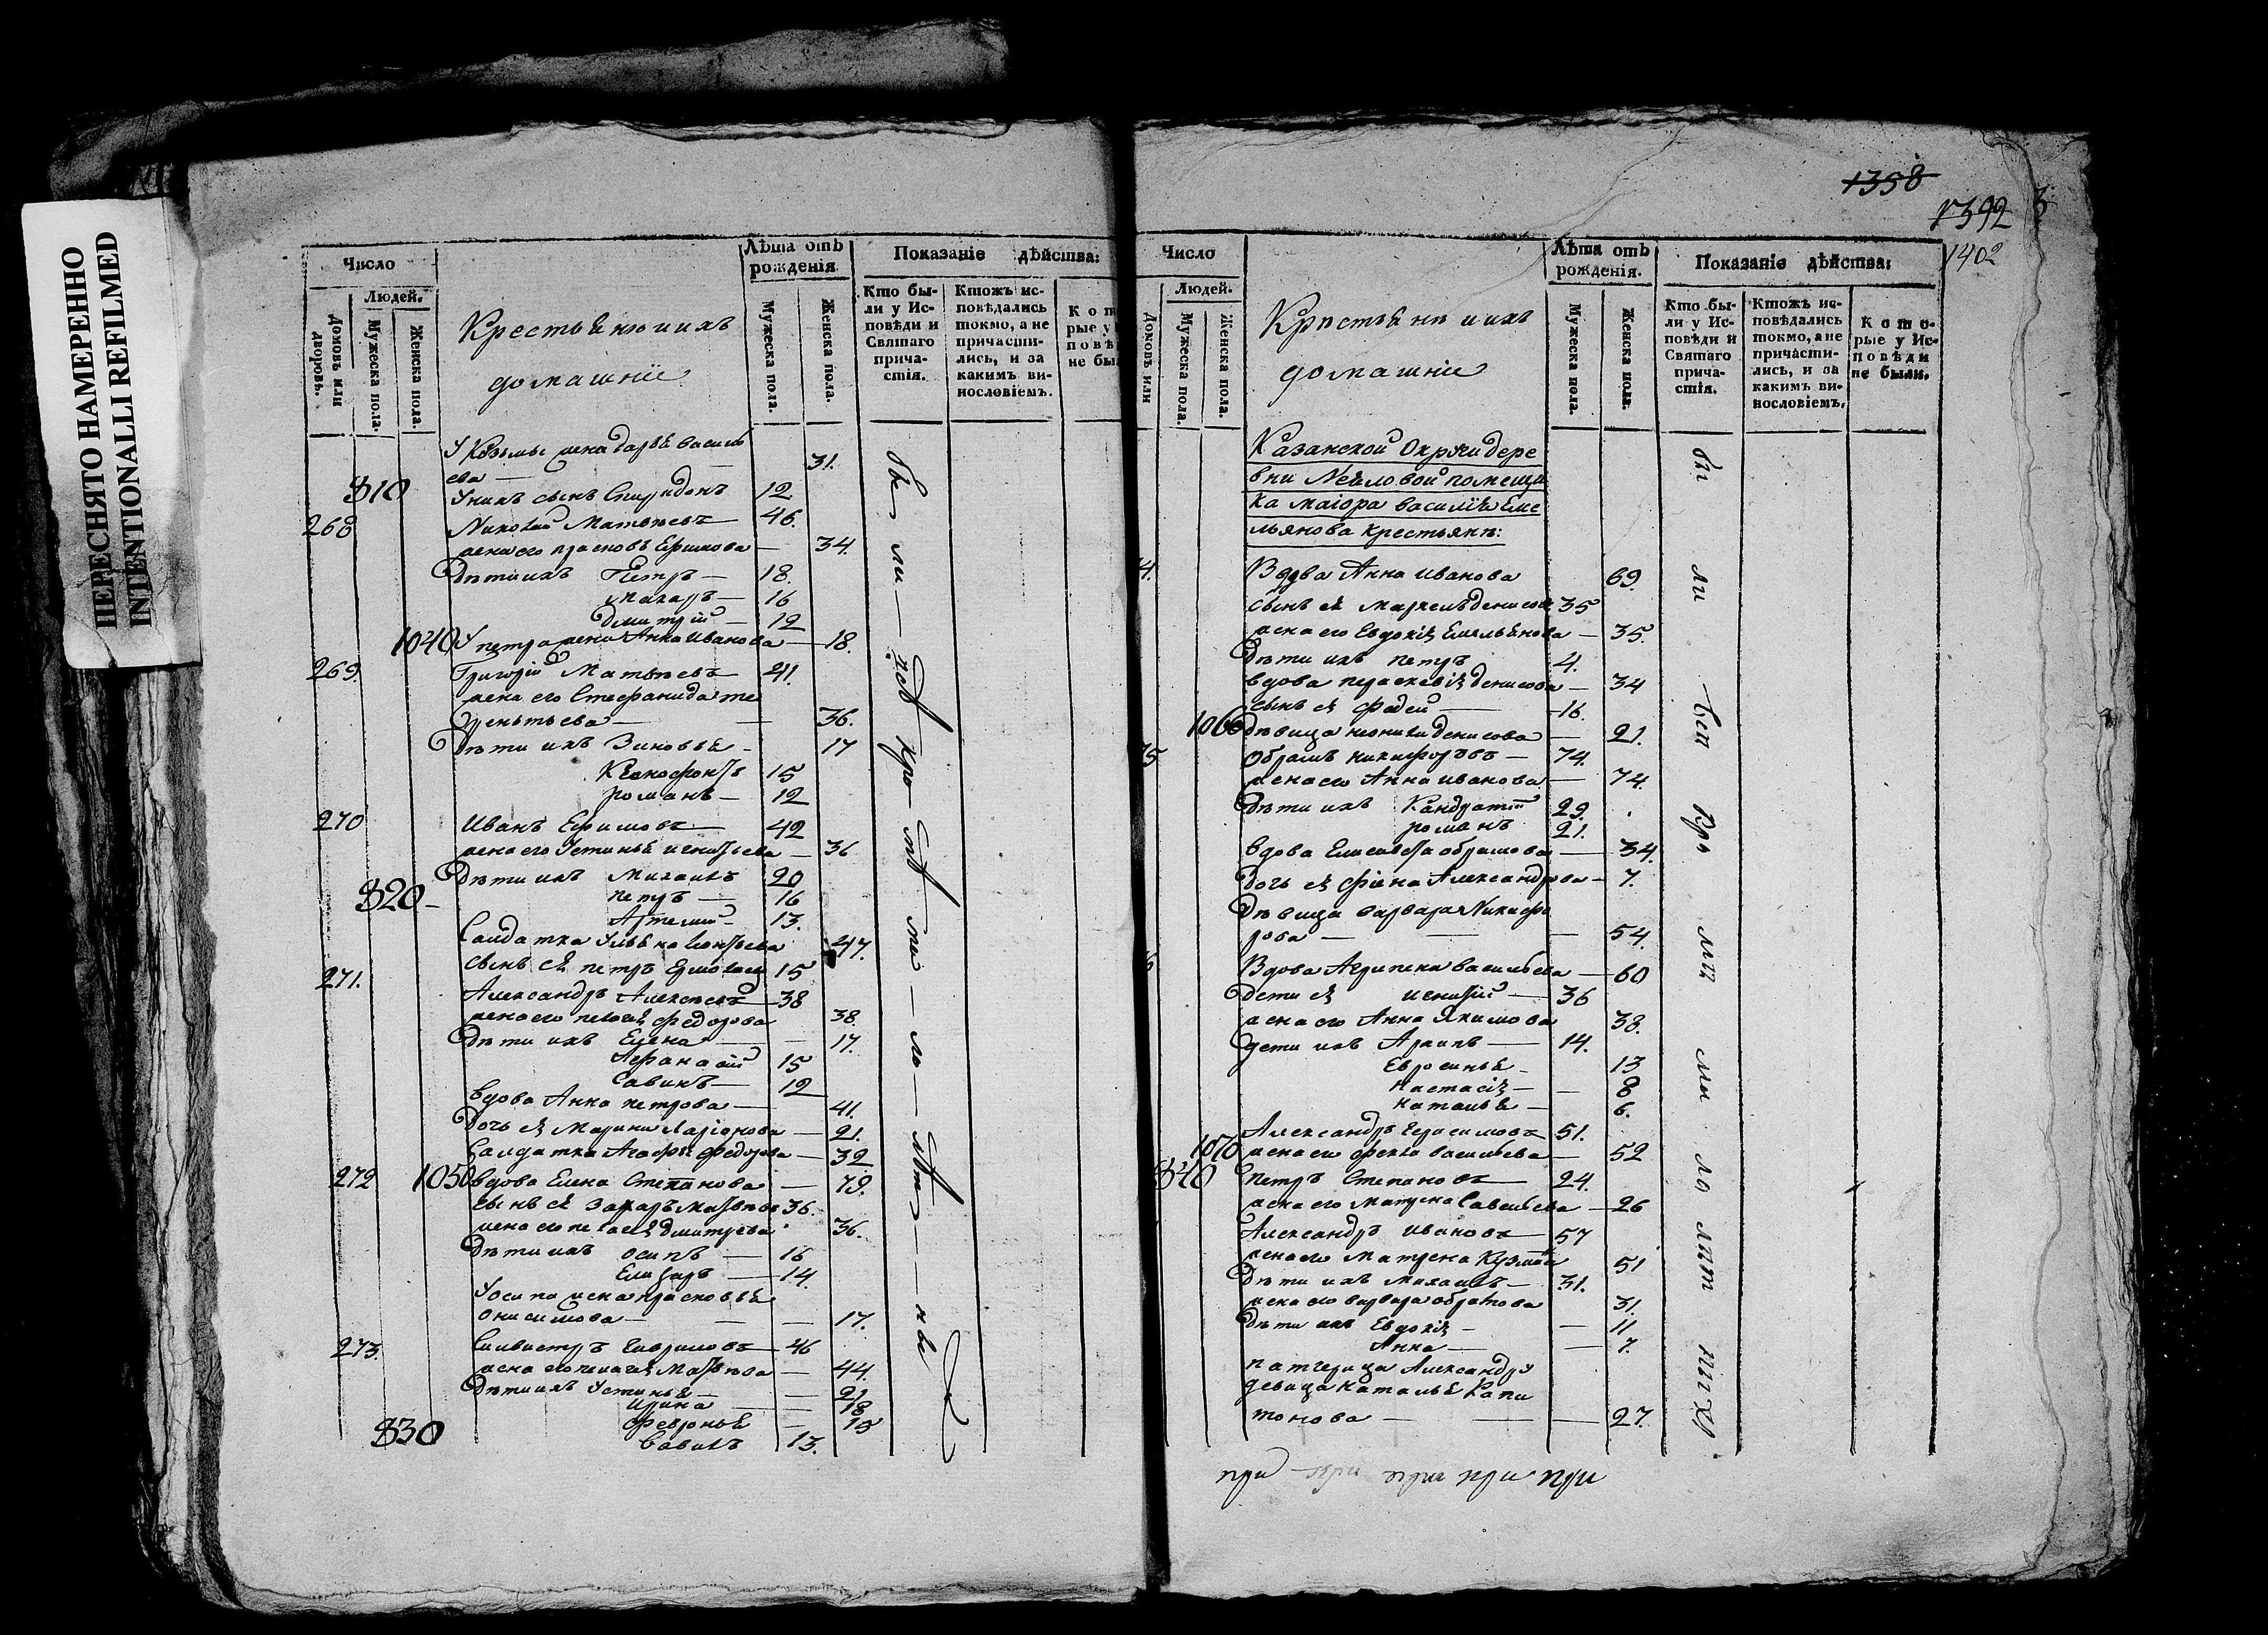 ПЕРЕСНЯТО НАМЕРЕННО
INTENTIONALLI REFILMED
Число
Людей.
Домовъ или дворовъ.
Мужеска пола.
Женска пола.
Крестьяне и ихъ
домашніе
Лѣта отъ рожденія.
Мужеска пола.
Женска пола.
Показаніе дѣйства:
Кто бы-
ли у Ис-
повѣди и
Святаго
прича-
стія.
Ктожъ ис-
повѣдались
токмо, а не
причасти-
лись, и за
какимъ ви-
нословіемъ.
Кот
рые у
повѣ
не бы
У Козьмы жена Дарья Василь
ева — 31.
810 У нихъ сынъ Спиридонъ 12
268 Николай Матвеевъ — 46.
жена его Прасковья Ефимова — 34.
Дети ихъ Петръ — 18.
Макаръ — 16
Дмитрій — 12
1040 У Петра жена Анна Иванова — 18.
269. Григорій Матвеевъ — 41.
жена его Стефанида Те
рентьева — 36.
Дети ихъ Зиновья — 17
Ксенофонтъ 15
Романъ — 12
270 Иванъ Ефимовъ — 42
жена его Устинья Игнатьева — 36
Дети ихъ Михаилъ 20
820 — Петръ — 16
Артемий — 13.
Салдатка Ульяна Леонтьева 47.
сынъ ея Петръ 15
271. Александръ Алексеевъ — 38
жена его Пелагея Федорова 38.
Дети ихъ Елена — 17.
Афанасий 15
Савинъ — 12
Вдова Анна Петрова — 41.
Дочь ея Марина Ларіонова — 21.
Салдатка Агафья Федорова — 32
272 1050 Вдова Елена Степанова — 79.
Сынъ ея Захаръ Матвеевъ 36.
жена его Пелагея Дмитрева 36.
Дети ихъ Осипъ — 16
Елизаръ — 14.
У Осипа жена Прасковья
Онисимова — 17.
273. Сильвестръ Гавриловъ — 46
жена его Пелагея Матвеева — 44.
Дети ихъ Устинья — 21
Ирина — 18
Февронья — 15
830 Савинъ 13.
1358
1392
1402
Число
Людей.
Домовъ или
Мужеска пола.
Женска пола.
Крестьяне и ихъ
домашніе
Лѣта отъ рожденія.
Мужеска пола.
Женска пола.
Показаніе дѣйства:
Кто бы-
ли у Ис-
повѣди и
Святаго
прича-
стія.
Ктожъ ис-
повѣдались
токмо, а не
причасти-
лись, и за
какимъ ви-
нословіемъ.
Кото-
рые у Ис-
повѣди
не были.
Казанской Округи дере
вни помещи
ка маіора Василія Еме
льянова крестьяне:
4. Вдова Анна Иванова 69.
сынъ ея Маркелъ Денисовъ 35
жена его Евдокія Емельянова — 35.
Дети ихъ Петръ 4.
Вдова Параскевія Денисова — 34
сынъ ея Фадей — 16.
1060 Девица Неонила Денисова — 21.
75 Обрамъ Никифоровъ — 74.
жена его Анна Иванова — 74.
Дети ихъ Кандратій 29.
Романъ 21.
Вдова Елисавета Обрамова — 34.
Дочь ея Александрова — 7.
Девица Варвара Никифо
рова — 54.
Вдова Агрипена Васильева — 60
Дети ея Игнатій — 36
жена его Анна Якимова 38.
Дети ихъ Архипъ — 14.
Евросинья — 13
Настасія — 8
Наталья — 6.
Александръ Герасимовъ 51.
1070 жена его Фекла Васильева — 52
840 Петръ Степановъ 24.
жена его Матрена Савельева — 26
Александръ Ивановъ — 57
жена его Матрена Кузмина 51
Дети ихъ Михаилъ — 31.
жена его Варвара Обрамова 31.
Дети ихъ Евдокія — 11
Анна — 7.
Патчерица Александру
девица Наталья Капи
тонова — 27.
при при при при